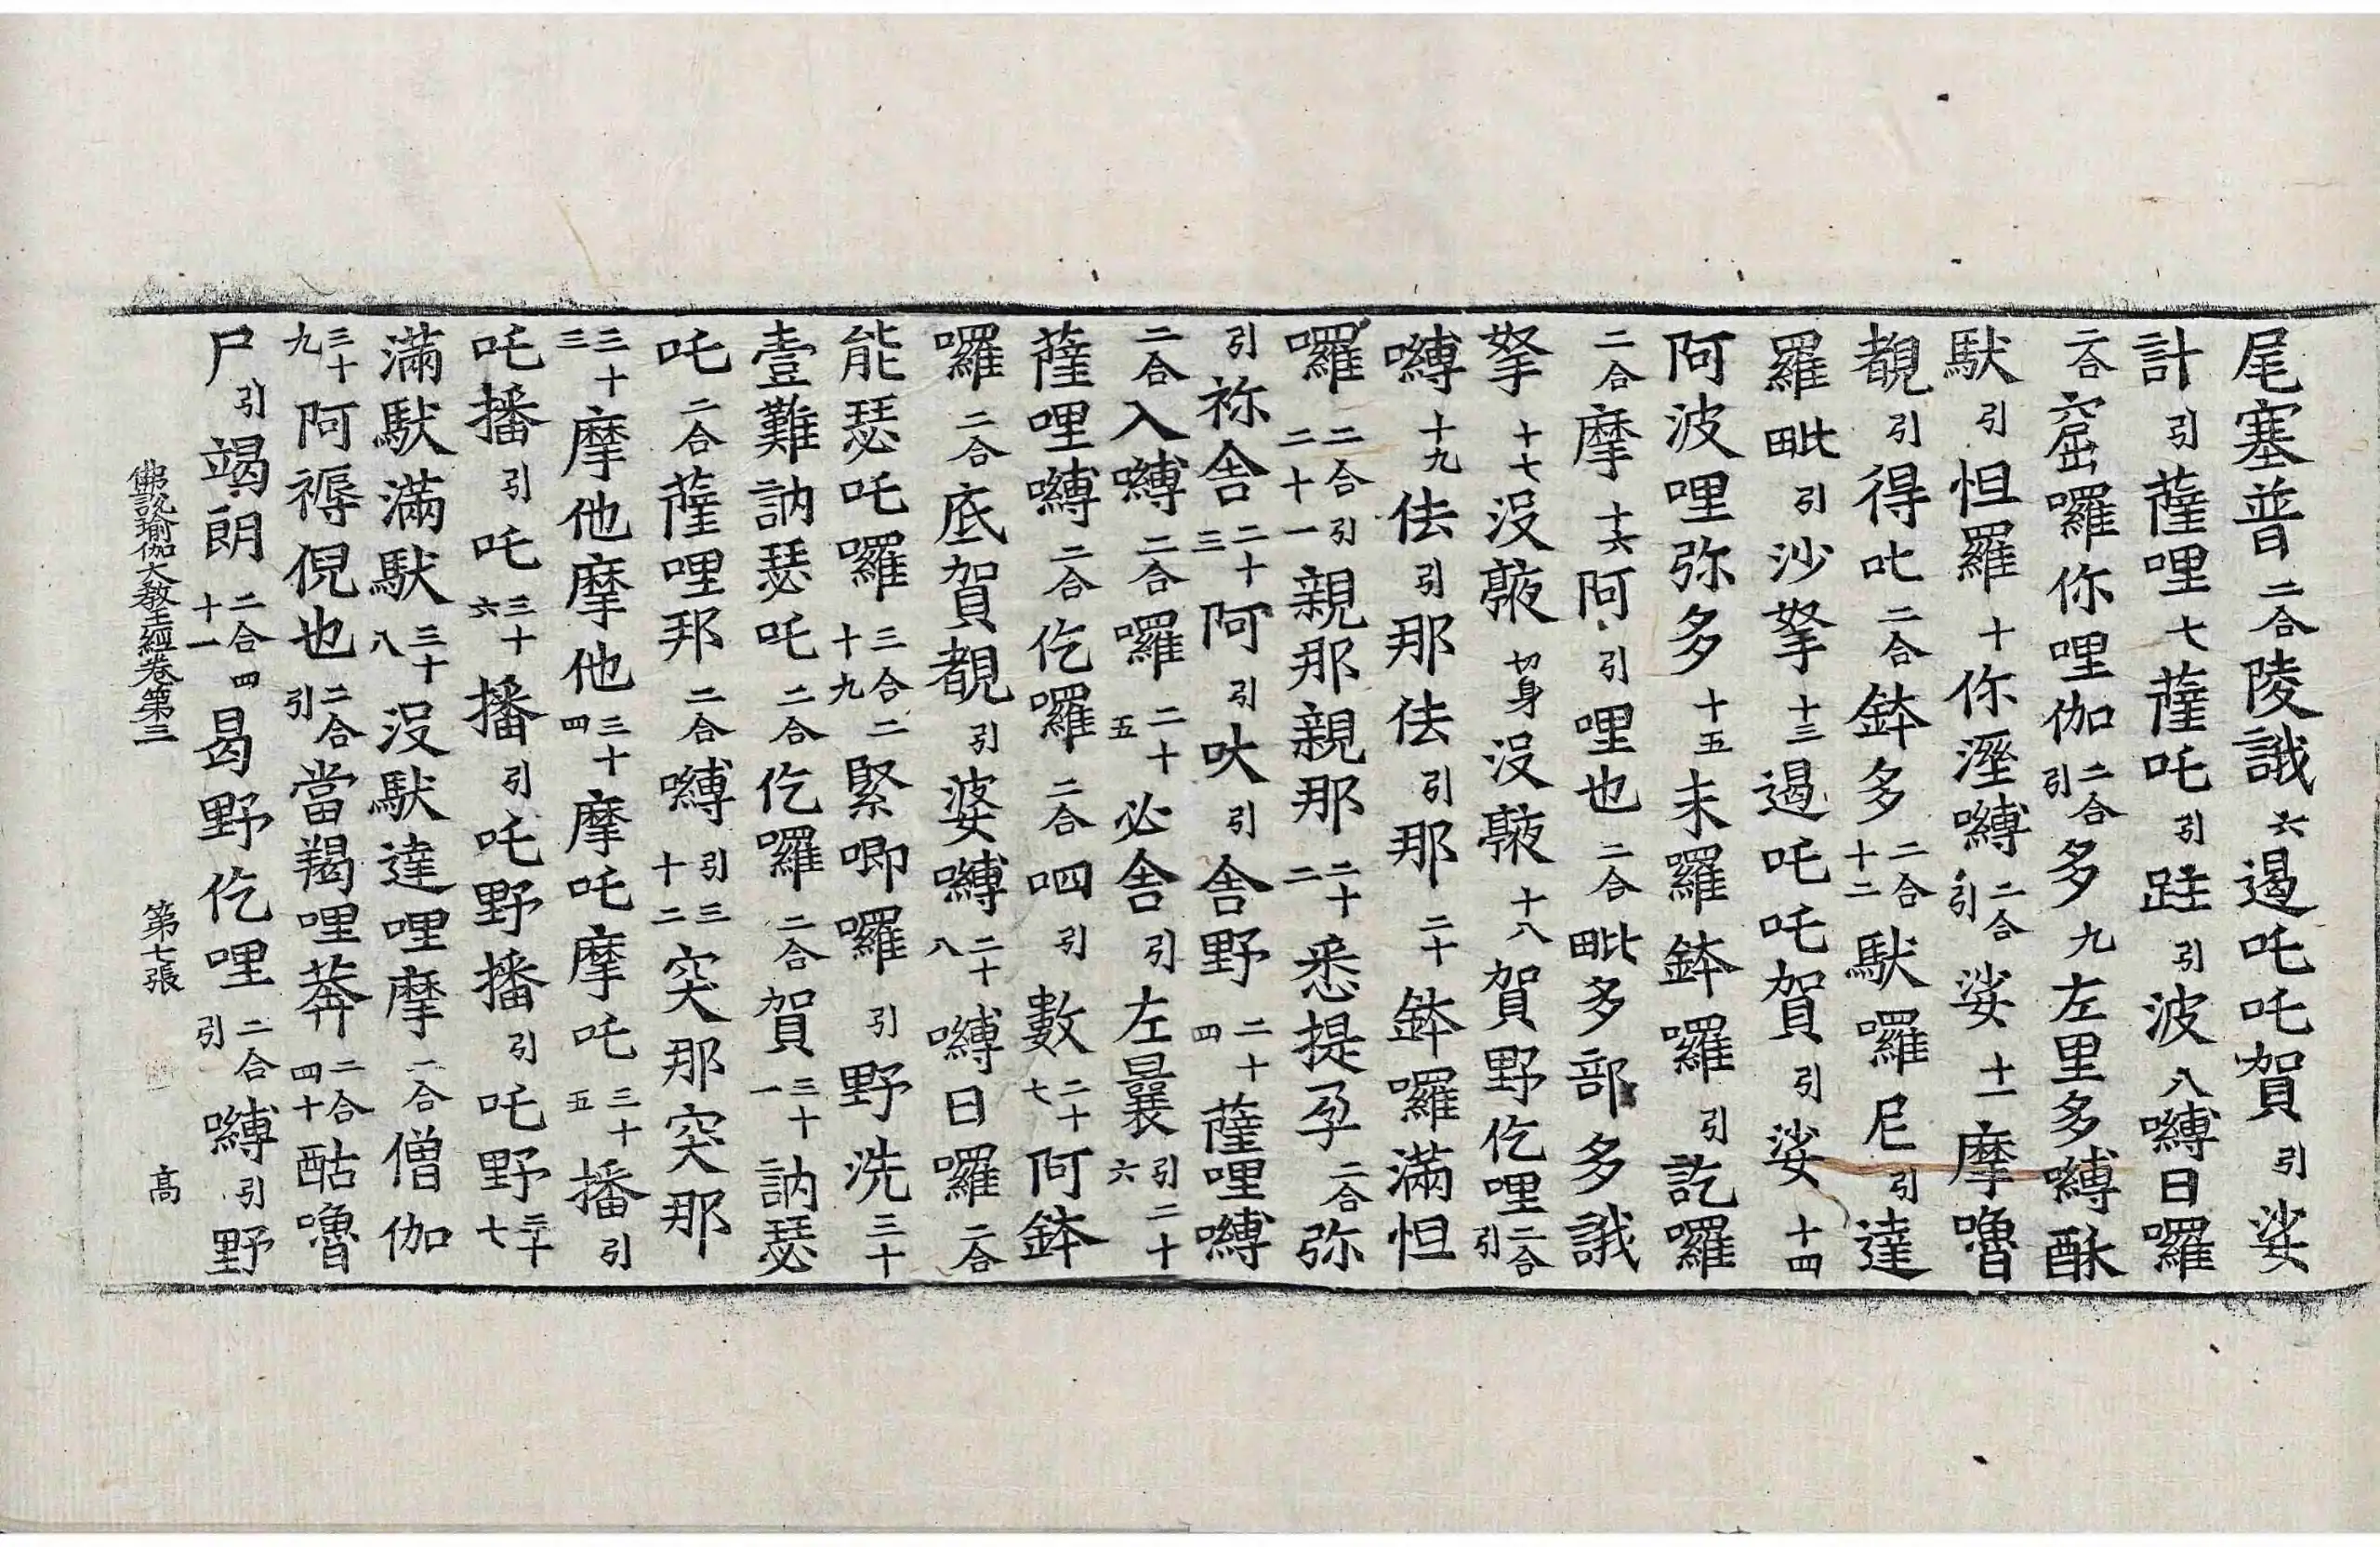 尾塞普二合陵誐六遏吒吒賀引娑
計引薩哩七薩吒引跬引波八嚩日囉
二合窟囉你哩伽二合引多九左里多嚩酥
馱引怛羅十你溼嚩二合引娑十一摩嚕
覩引得叱二合鉢多二合十二馱囉尼引達
羅毗引沙拏十三遏吒吒賀引娑十四
阿波哩弥多十五末羅鉢囉引訖囉
二合摩十六阿引哩也二合毗多部多誐
拏十七沒䫂切身沒䫂十八賀野仡哩二合引
嚩十九佉引那佉引那二十鉢囉滿怛
囉二合引二十一親那親那二十二悉提孕二合弥
引祢舍二十三阿引吠引舍野二十四薩哩嚩
二合入嚩二合囉二十五必舍引左曩引二十六
薩哩嚩二合仡囉二合呬引數二十七阿鉢
囉二合底賀覩引婆嚩二十八嚩日囉二合
能瑟吒囉三合二十九緊唧囉引野洗三十
壹難訥瑟吒二合仡囉二合賀三十一訥瑟
吒二合薩哩邦二合嚩引三十二突那突那
三十三摩他摩他三十四摩吒摩吒三十五播引
吒播引吒三十六播引吒野播引吒野三十七
滿馱滿馱三十八沒馱達哩摩二合僧伽
三十九阿褥倪也二合引當羯哩莾二合四十酤嚕
尸引竭朗二合四十一曷野仡哩二合引嚩引野
佛說瑜伽大敎王經卷第三 第七張 高